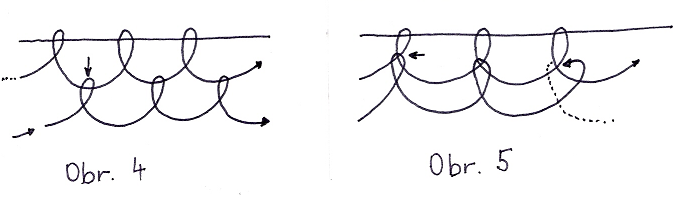 Obr. 4
Obr. 5